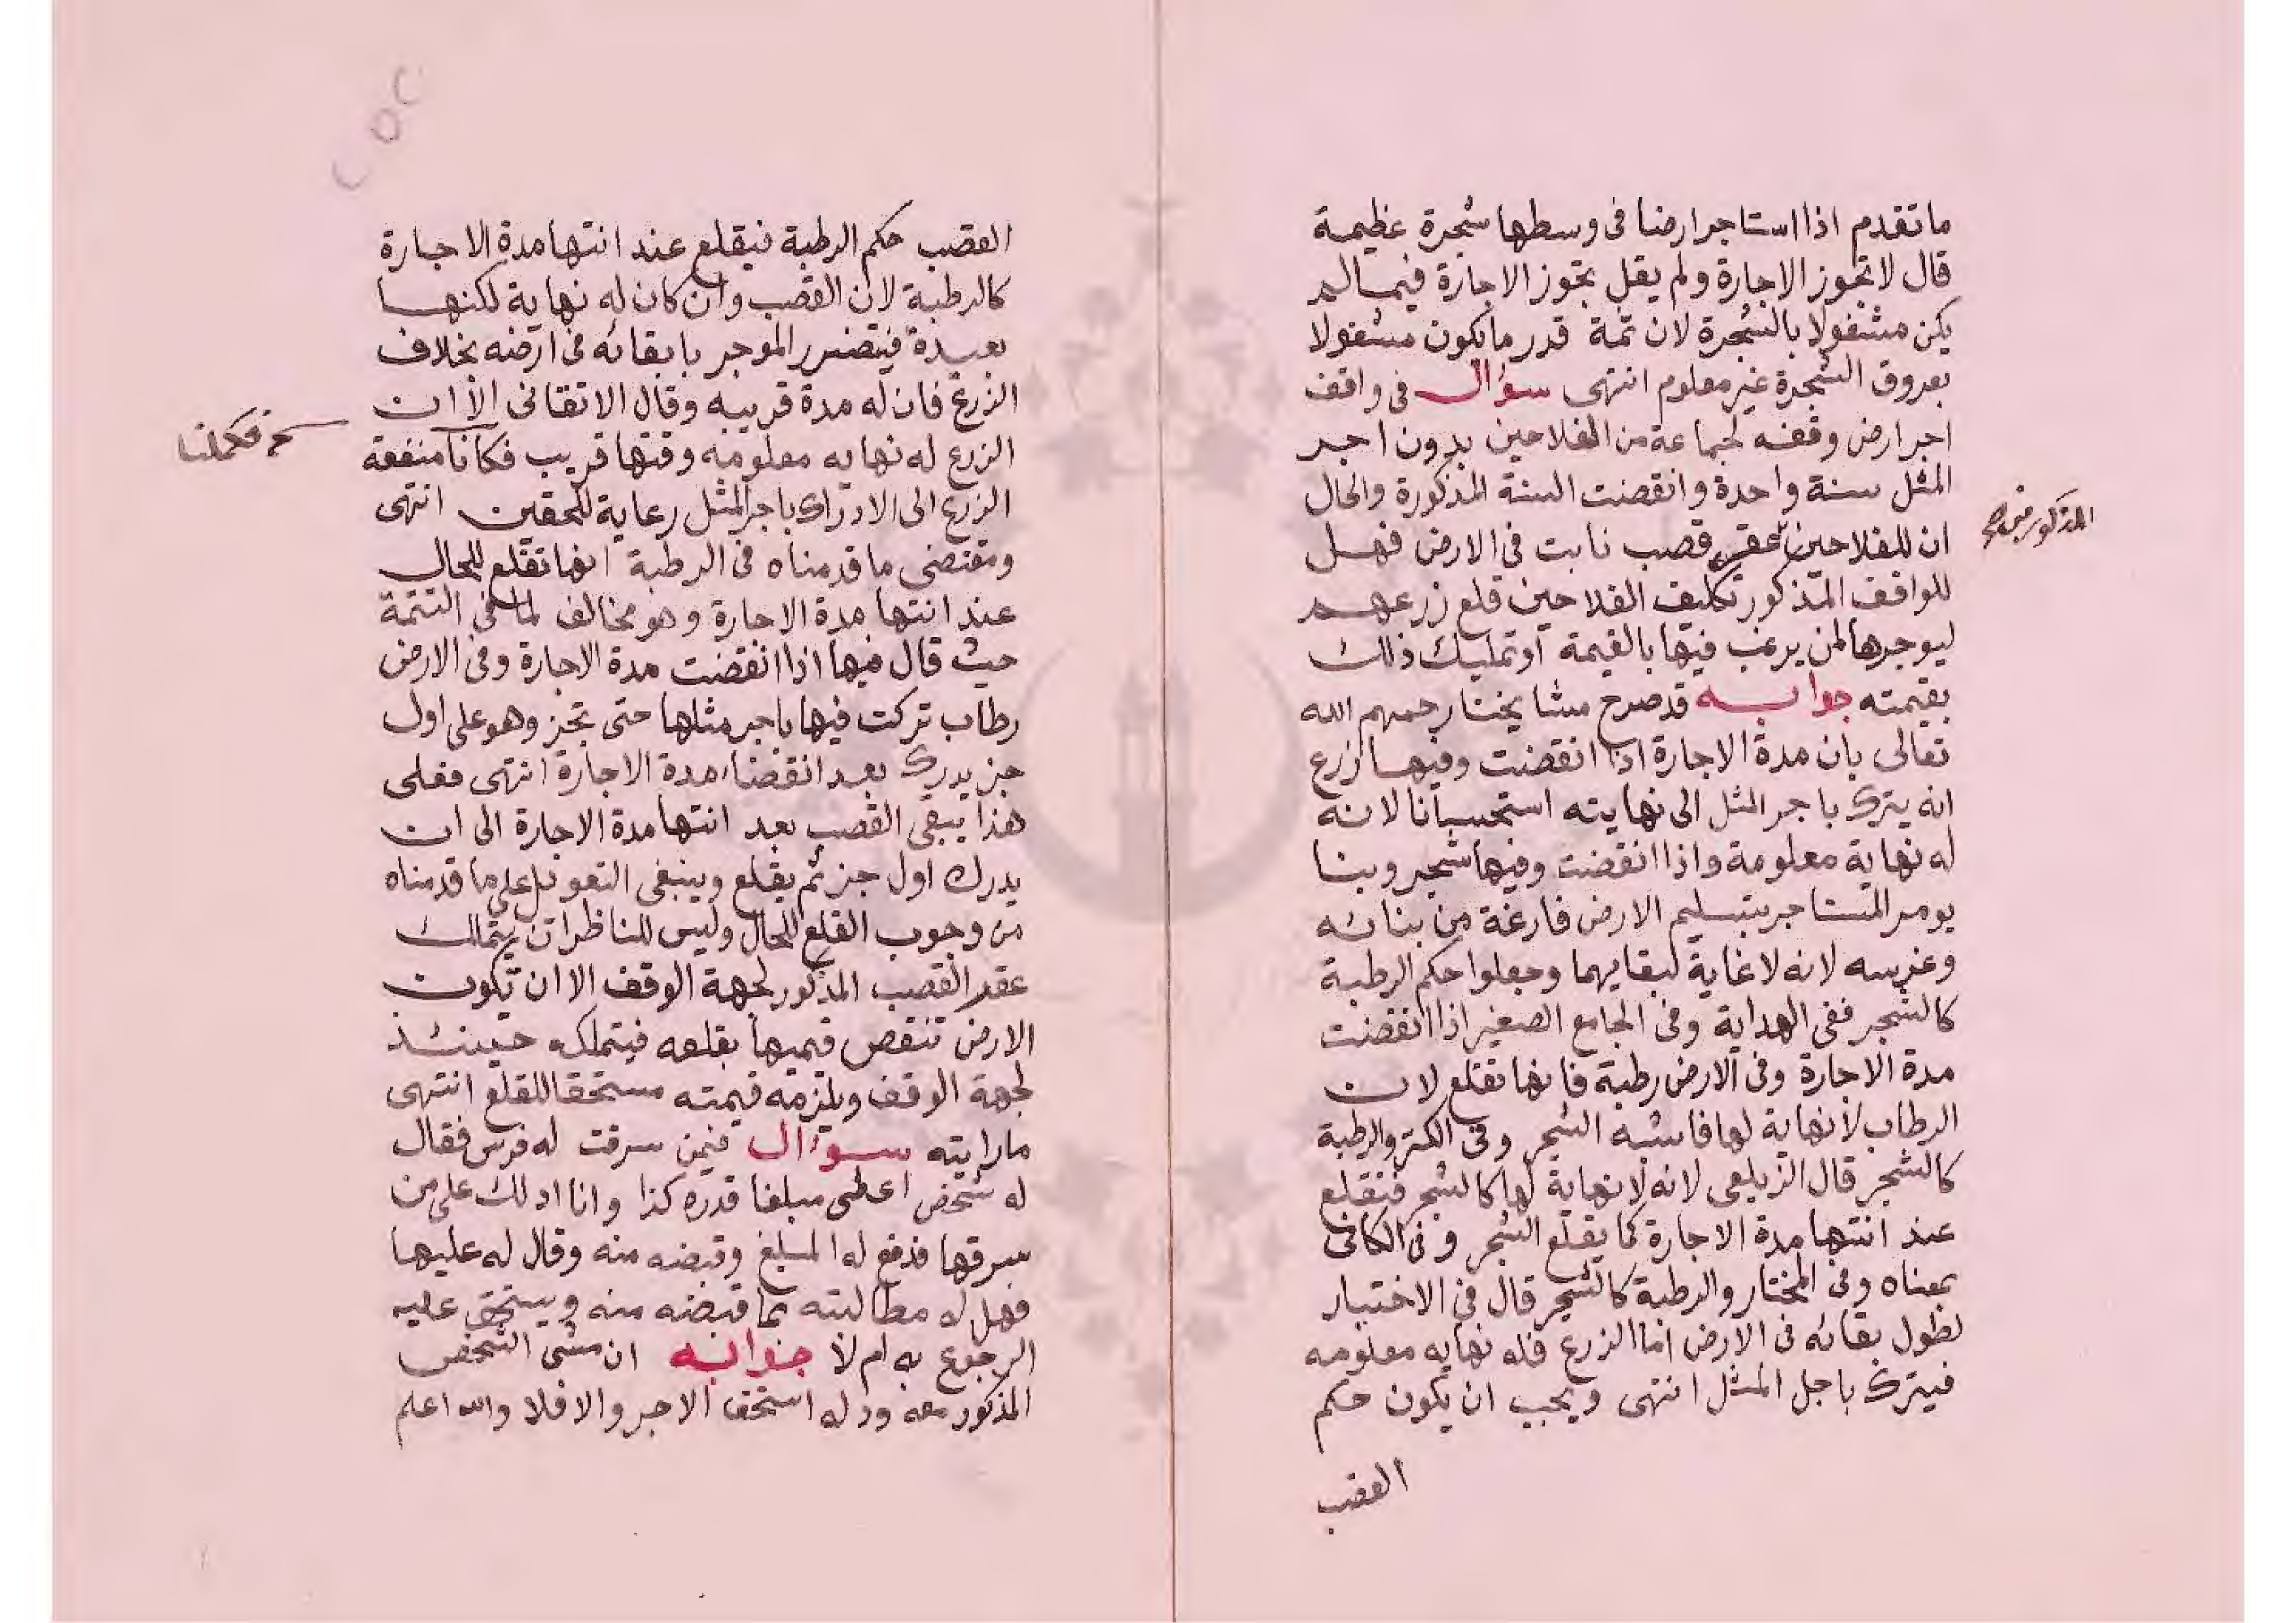 ما تقدم اذا استاجر ارضا فى وسطها شجرة عظيمة
قال لا تجوز الاجارة ولم يقل تجوز الاجارة فيما لم
يكن مشغولا بالشجرة لان ثمة قدر ما يكون مشغولا
بعروق الشجرة غير معلوم انتهى سؤال فى واقف
اجر ارض وقفه لجماعة من الفلاحين بدون اجر
المثل سنة واحدة وانقضت السنة المذكورة والحال
ان للفلاحين عقر قصب نابت فى الارض فهل
المذكورين
للواقف المذكور تكليف الفلاحين قلع زرعهم
ليوجرها لمن يرغب فيها بالقيمة او تمليك ذلك
بقيمته جوابه قد صرح مشايخنا رحمهم الله
تعالى بان مدة الاجارة اذا انقضت وفيها زرع
انه يترك باجر المثل الى نهايته استحسانا لانه
له نهاية معلومة واذا انقضت وفيها شجر وبنا
يومر المستاجر بتسليم الارض فارغة من بنائه
وغرسه لانه لا غاية لبقايهما وجعلوا حكم الرطبة
كالشجر ففى الهداية وفى الجامع الصغير اذا انقضت
مدة الاجارة وفى الارض رطبة فانها تقلع لان
الرطاب لا نهاية لها فاشبه الشجر وفى الكنز والرطبة
كالشجر قال الزيلعى لانه لا نهاية لها كالشجر فتقلع
عند انتها مدة الاجارة كما يقلع الشجر وفى الكافى
بمعناه وفى المختار والرطبة كالشجر قال فى الاختيار
لطول بقائه فى الارض اما الزرع فله نهايه معلومه
فيترك باجل المثل انتهى ويجب ان يكون حكم
القصب
القصب حكم الرطبة فيقلع عند انتها مدة الاجارة
كالرطبة لان القصب وان كان له نهاية لكنها
بعيدة فيتضرر الموجر بابقائه فى ارضه بخلاف
الزرع فان له مدة قريبه وقال الاتقانى الا ان
الزرع له نهايه معلومه وقتها قريب فكانا منفعة
فكملنا
الزرع الى الادراك باجر المثل رعاية للحقين انتهى
ومقتضى ما قدمناه فى الرطبة انها تقلع للحال
عند انتها مدة الاجارة وهو مخالف لما فى التتمة
حيث قال فيها اذا انقضت مدة الاجارة وفى الارض
رطاب تركت فيها باجر مثلها حتى تجز وهو على اول
جز يدرك بعد انقضاء مدة الاجارة انتهى فعلى
هذا يبقى القصب بعد انتها مدة الاجارة الى ان
يدرك اول جز ثم يقلع وينبغى التعويل على ما قدمناه
من وجوب القلع للحال وليس للناظر ان يتملك
عقر القصب المذكور لجهة الوقف الا ان تكون
الارض تنقص قيمتها بقلعه فيتملك حينئذ
لجهة الوقف ويلزمه قيمته مستحقا للقلع انتهى
ما رايته سوءال فيمن سرقت له فرس فقال
له شخص اعطى مبلغا قدره كذا وانا ادلك على من
سرقها فدفع له المبلغ وقبضه منه وقال له عليها
فهل له مطالبته بما قبضه منه ويستحق عليه
الرجوع به ام لا جوابه ان مشى الشخص
المذكور معه ودله استحق الاجر والا فلا والله اعلم